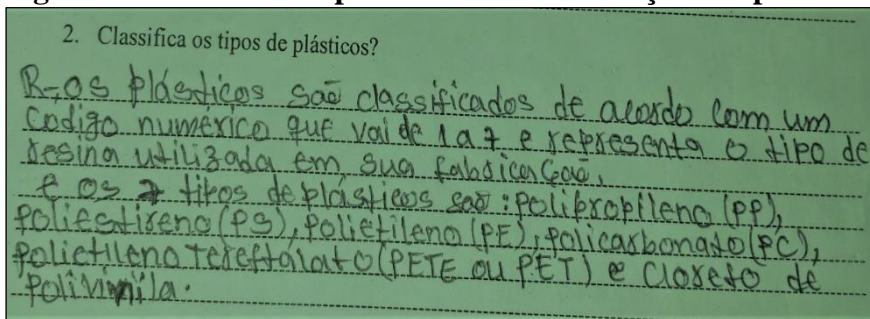 2. Classifica os tipos de plásticos?
R-os plásticos são classificados de acordo com um
codigo numérico que vai de 1 a 7 e representa o tipo de
resina utilizada em sua fabricação,
e os 7 tipos de plásticos são: polipropileno (PP),
poliestireno (PS), polietileno (PE), policarbonato (PC),
polietileno tereftalato (PETE ou PET) e cloreto de
polivinila.